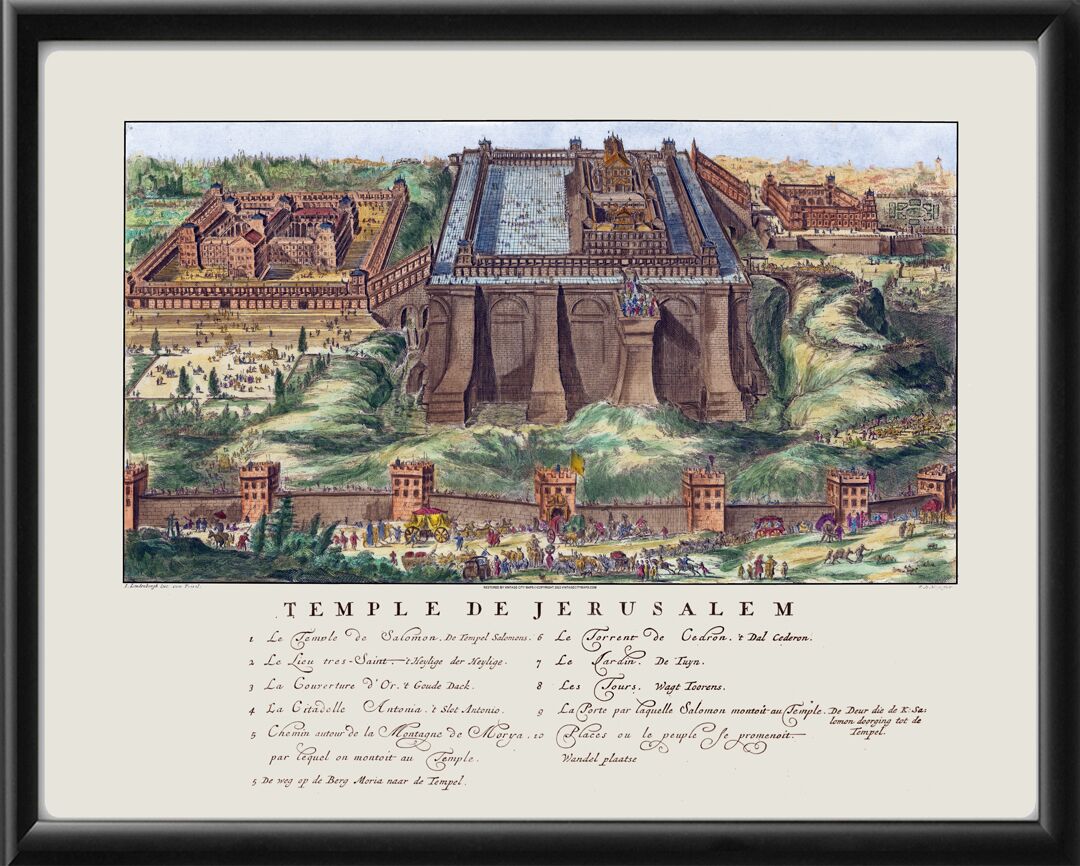 J. Lindenbergh Exc. cum Privil.
RESTORED BY VINTAGE CITY MAPS © COPYRIGHT 2022 VINTAGECITYMAPS.COM
TEMPLE DE JERUSALEM
1 Le Temple de Salomon. De Tempel Salomons.
2 Le Lieu tres-Saint. 't Heylige der Heylige.
3 La Couverture d'Or. 't Goude Dack.
4 La Citadelle Antonia. 't Slot Antonio.
5 Chemin autour de la Montagne de Morya.
par lequel on montoit au Temple.
5 De weg op de Berg Moria naar de Tempel.
6 Le Torrent de Cedron. 't Dal Cederon.
7 Le Jardin. De Tuyn.
8 Les Tours. Wagt Toorens.
9 La Porte par laquelle Salomon montoit au Temple. De Deur die de K: Sa-
lomon doorging tot de
Tempel.
10 Places ou le peuple se promenoit.
Wandel plaatse